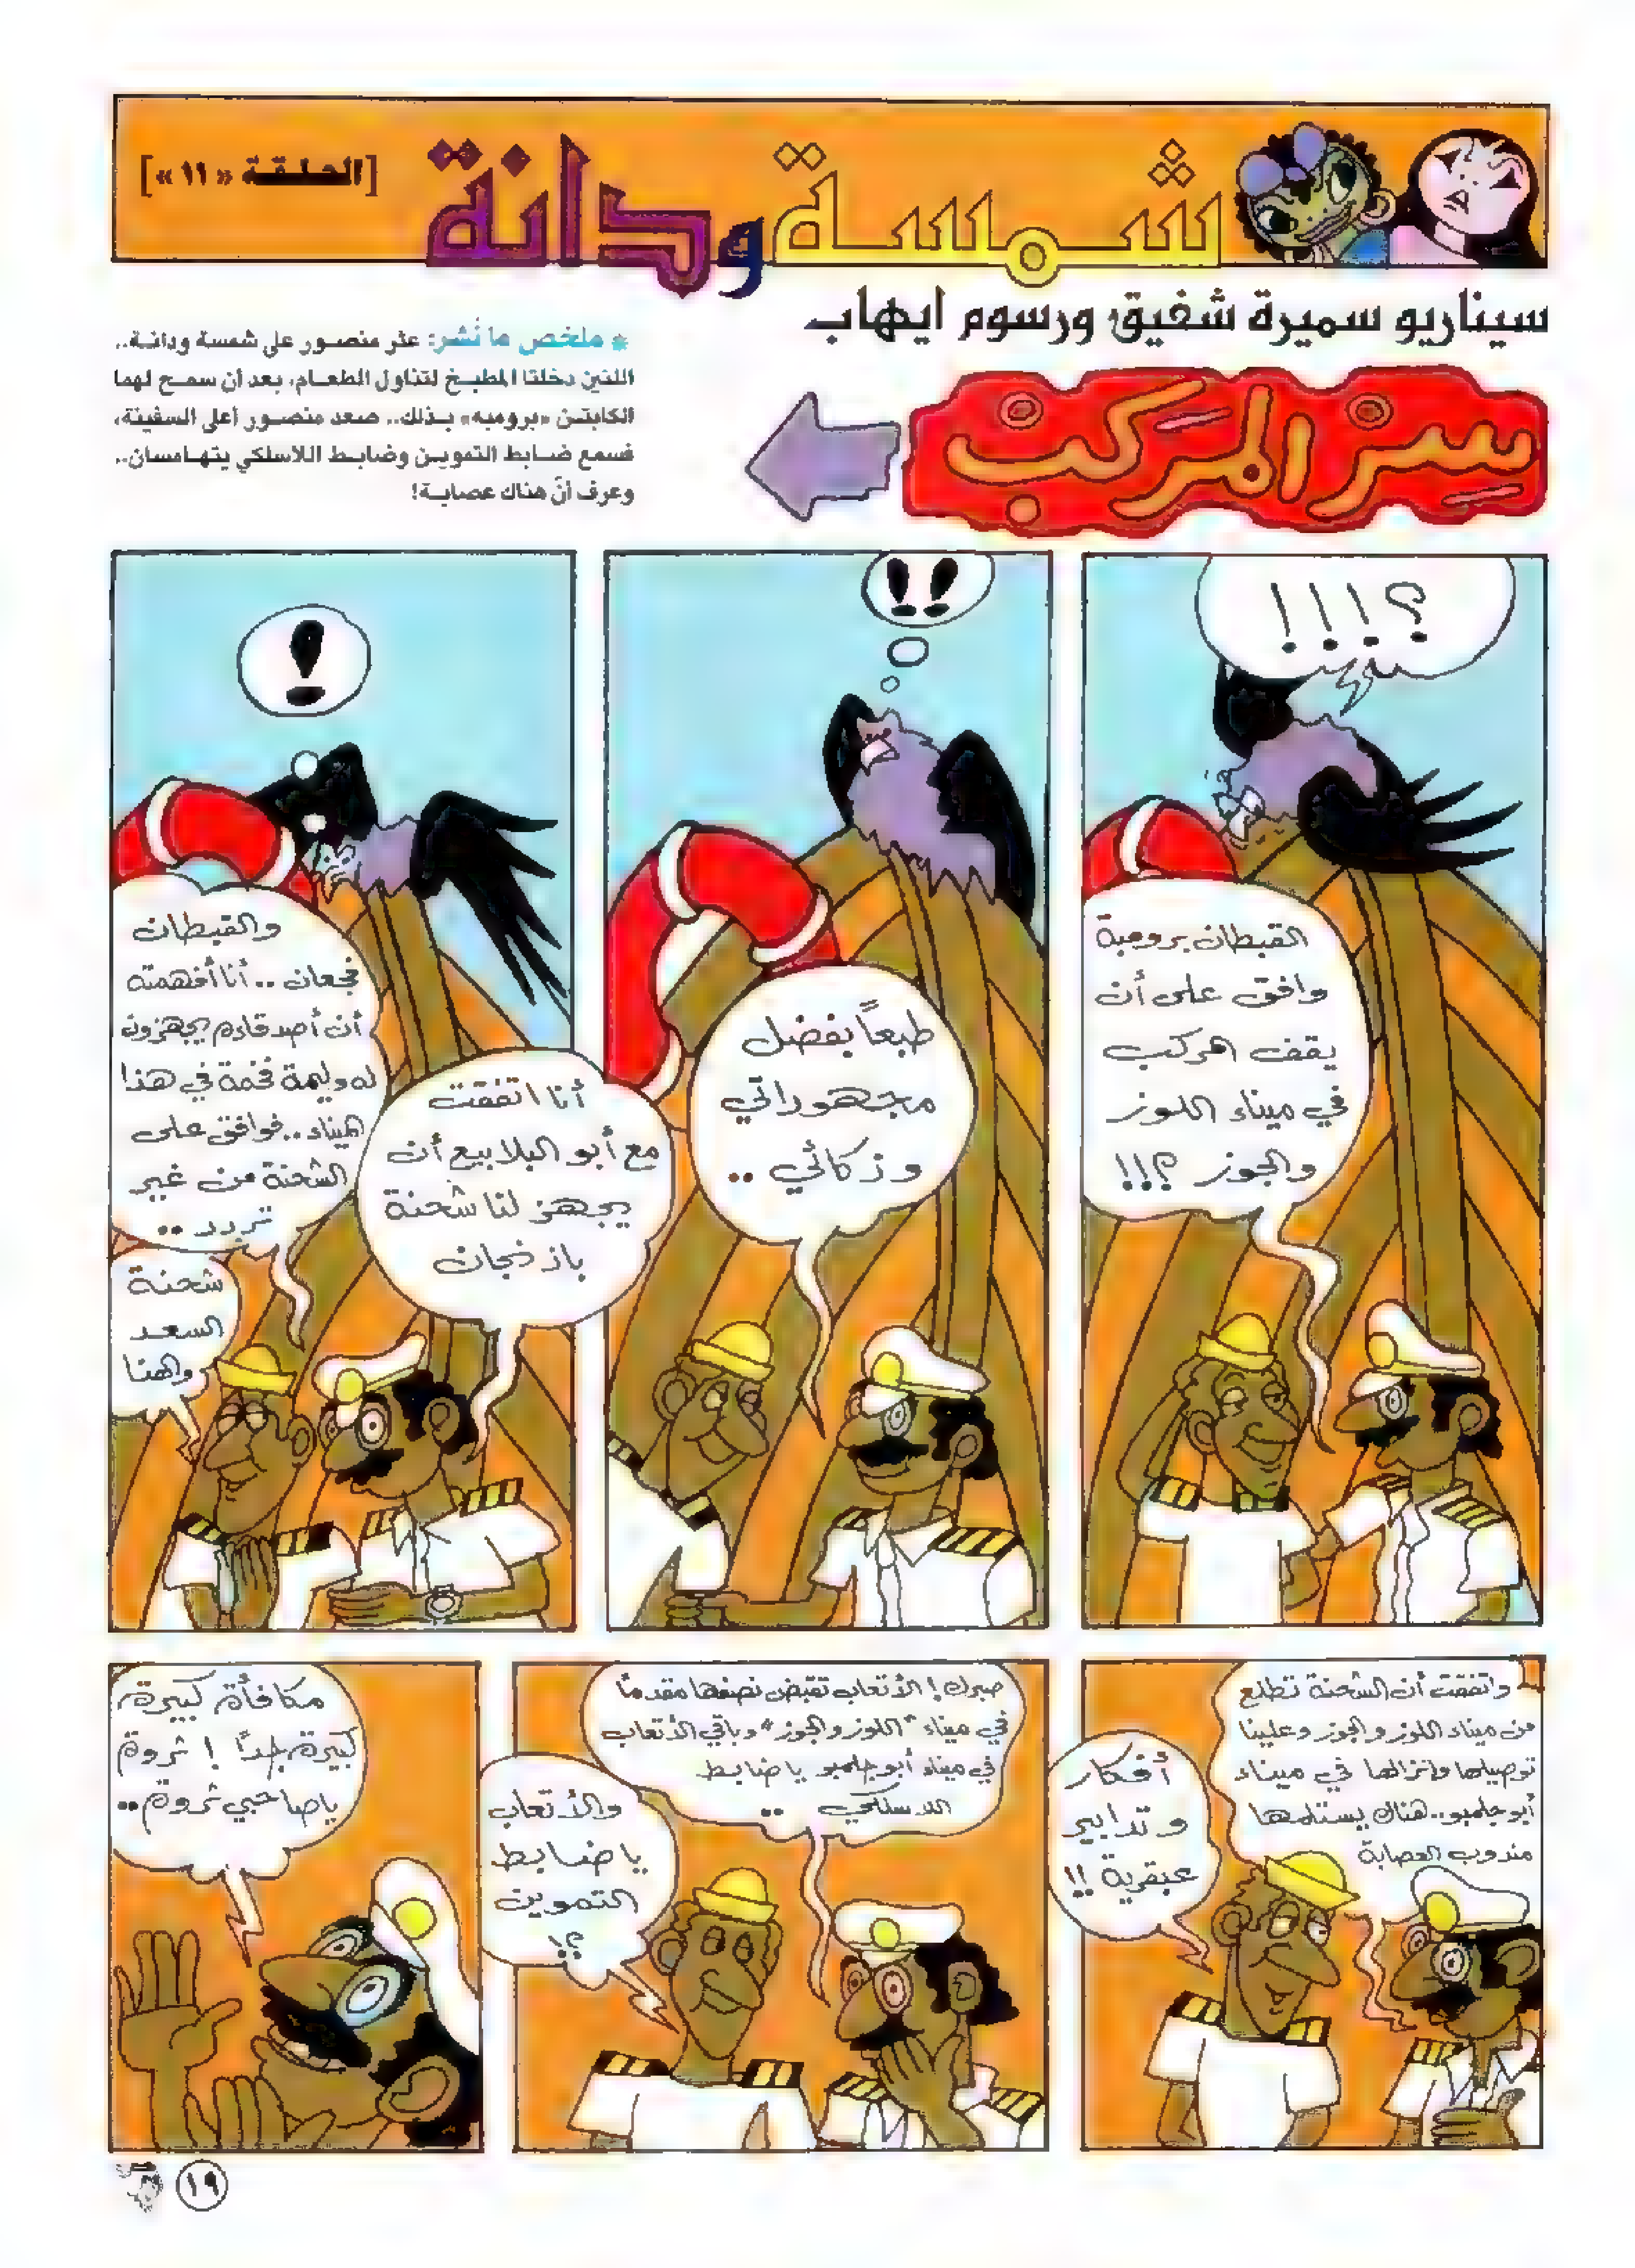 شمسة ودانة
[الحلقة « ١١ »]
سيناريو سميرة شفيق ورسوم ايهاب
سِرّ المَركَب
* ملخص ما نُشر: عثر منصور على شمسة ودانة..
اللتين دخلتا المطبخ لتناول الطعام، بعد أن سمح لهما
الكابتن «بروميه» بذلك.. صعد منصور أعلى السفينة،
فسمع ضابط التموين وضابط اللاسلكي يتهامسان..
وعرف أنّ هناك عصابة!
؟!!!
القبطان برومية
وافق على أن
يقف المركب
في ميناء اللوز
والجوز ؟!!
!!
طبعاً بفضل
مجهوداتي
وذكائي ..
!
أنا اتفقت
مع أبو البلابيع أن
يجهز لنا شحنة
باذنجان
والقبطان
فجعان .. أنا أفهمته
أن أصدقاءه يجهزون
له وليمة فخمة في هذا
الميناء.. فوافق على
الشحنة من غير
تردد ..
شحنة
السعد
والهنا
واتفقت أن الشحنة تطلع
من ميناء اللوز والجوز وعلينا
توصيلها وإنزالها في ميناء
أبو جلمبو.. هناك يستلمها
مندوب العصابة
أفكار
وتدابير
عبقرية !!
صبرك ! الأتعاب تقبض نصفها مقدماً
في ميناء "اللوز والجوز" وباقي الأتعاب
في ميناء أبو جلمبو يا ضابط
اللاسلكي ..
والأتعاب
يا ضابط
التموين
؟!
مكافأة كبيرة،
كبيرة جداً ! ثروة
يا صاحبي ثروة..
١٩